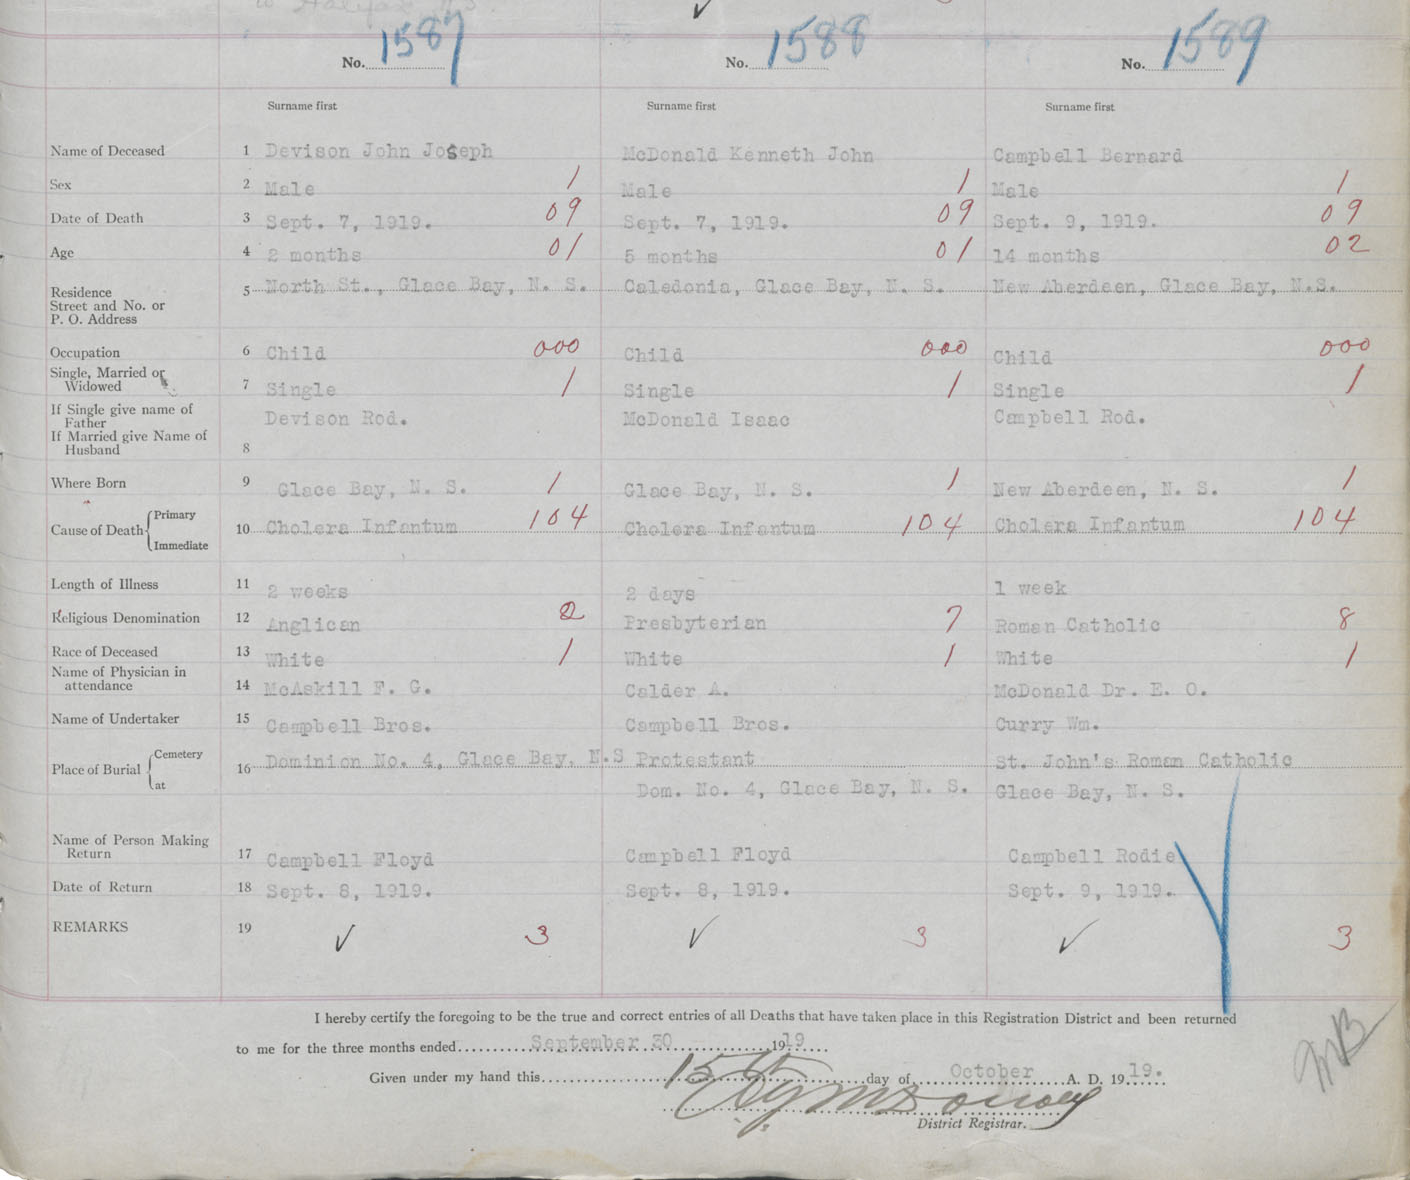 to Halifax N.S.
No. 1587 No. 1588 No. 1589
Surname first Surname first Surname first
Name of Deceased 1 Devison John Joseph McDonald Kenneth John Campbell Bernard
Sex 2 Male 1 Male 1 Male 1
Date of Death 3 Sept. 7, 1919. 09 Sept. 7, 1919. 09 Sept. 9, 1919. 09
Age 4 2 months 01 5 months 01 14 months 02
Residence
Street and No. or
P. O. Address
5 North St., Glace Bay, N. S. Caledonia, Glace Bay, N. S. New Aberdeen, Glace Bay, N.S.
Occupation 6 Child 000 Child 000 Child 000
Single, Married or
Widowed
7 Single 1 Single 1 Single 1
If Single give name of
Father
Devison Rod. McDonald Isaac Campbell Rod.
If Married give Name of
Husband 8
Where Born 9 Glace Bay, N. S. 1 Glace Bay, N. S. 1 New Aberdeen, N. S. 1
Cause of Death Primary
Immediate
10 Cholera Infantum 104 Cholera Infantum 104 Cholera Infantum 104
Length of Illness 11 2 weeks 2 days 1 week
Religious Denomination 12 Anglican 2 Presbyterian 7 Roman Catholic 8
Race of Deceased 13 White 1 White 1 White 1
Name of Physician in
attendance
14 McAskill F. G. Calder A. McDonald Dr. E. O.
Name of Undertaker 15 Campbell Bros. Campbell Bros. Curry Wm.
Place of Burial Cemetery
at
16 Dominion No. 4, Glace Bay, N.S Protestant St. John's Roman Catholic
Dom. No. 4, Glace Bay, N. S. Glace Bay, N. S.
Name of Person Making
Return
17 Campbell Floyd Campbell Floyd Campbell Rodie
Date of Return 18 Sept. 8, 1919. Sept. 8, 1919. Sept. 9, 1919.
REMARKS 19 ✓ 3 ✓ 3 ✓ 3
I hereby certify the foregoing to be the true and correct entries of all Deaths that have taken place in this Registration District and been returned
to me for the three months ended September 30 1919
Given under my hand this 15th day of October A. D. 1919.
District Registrar.